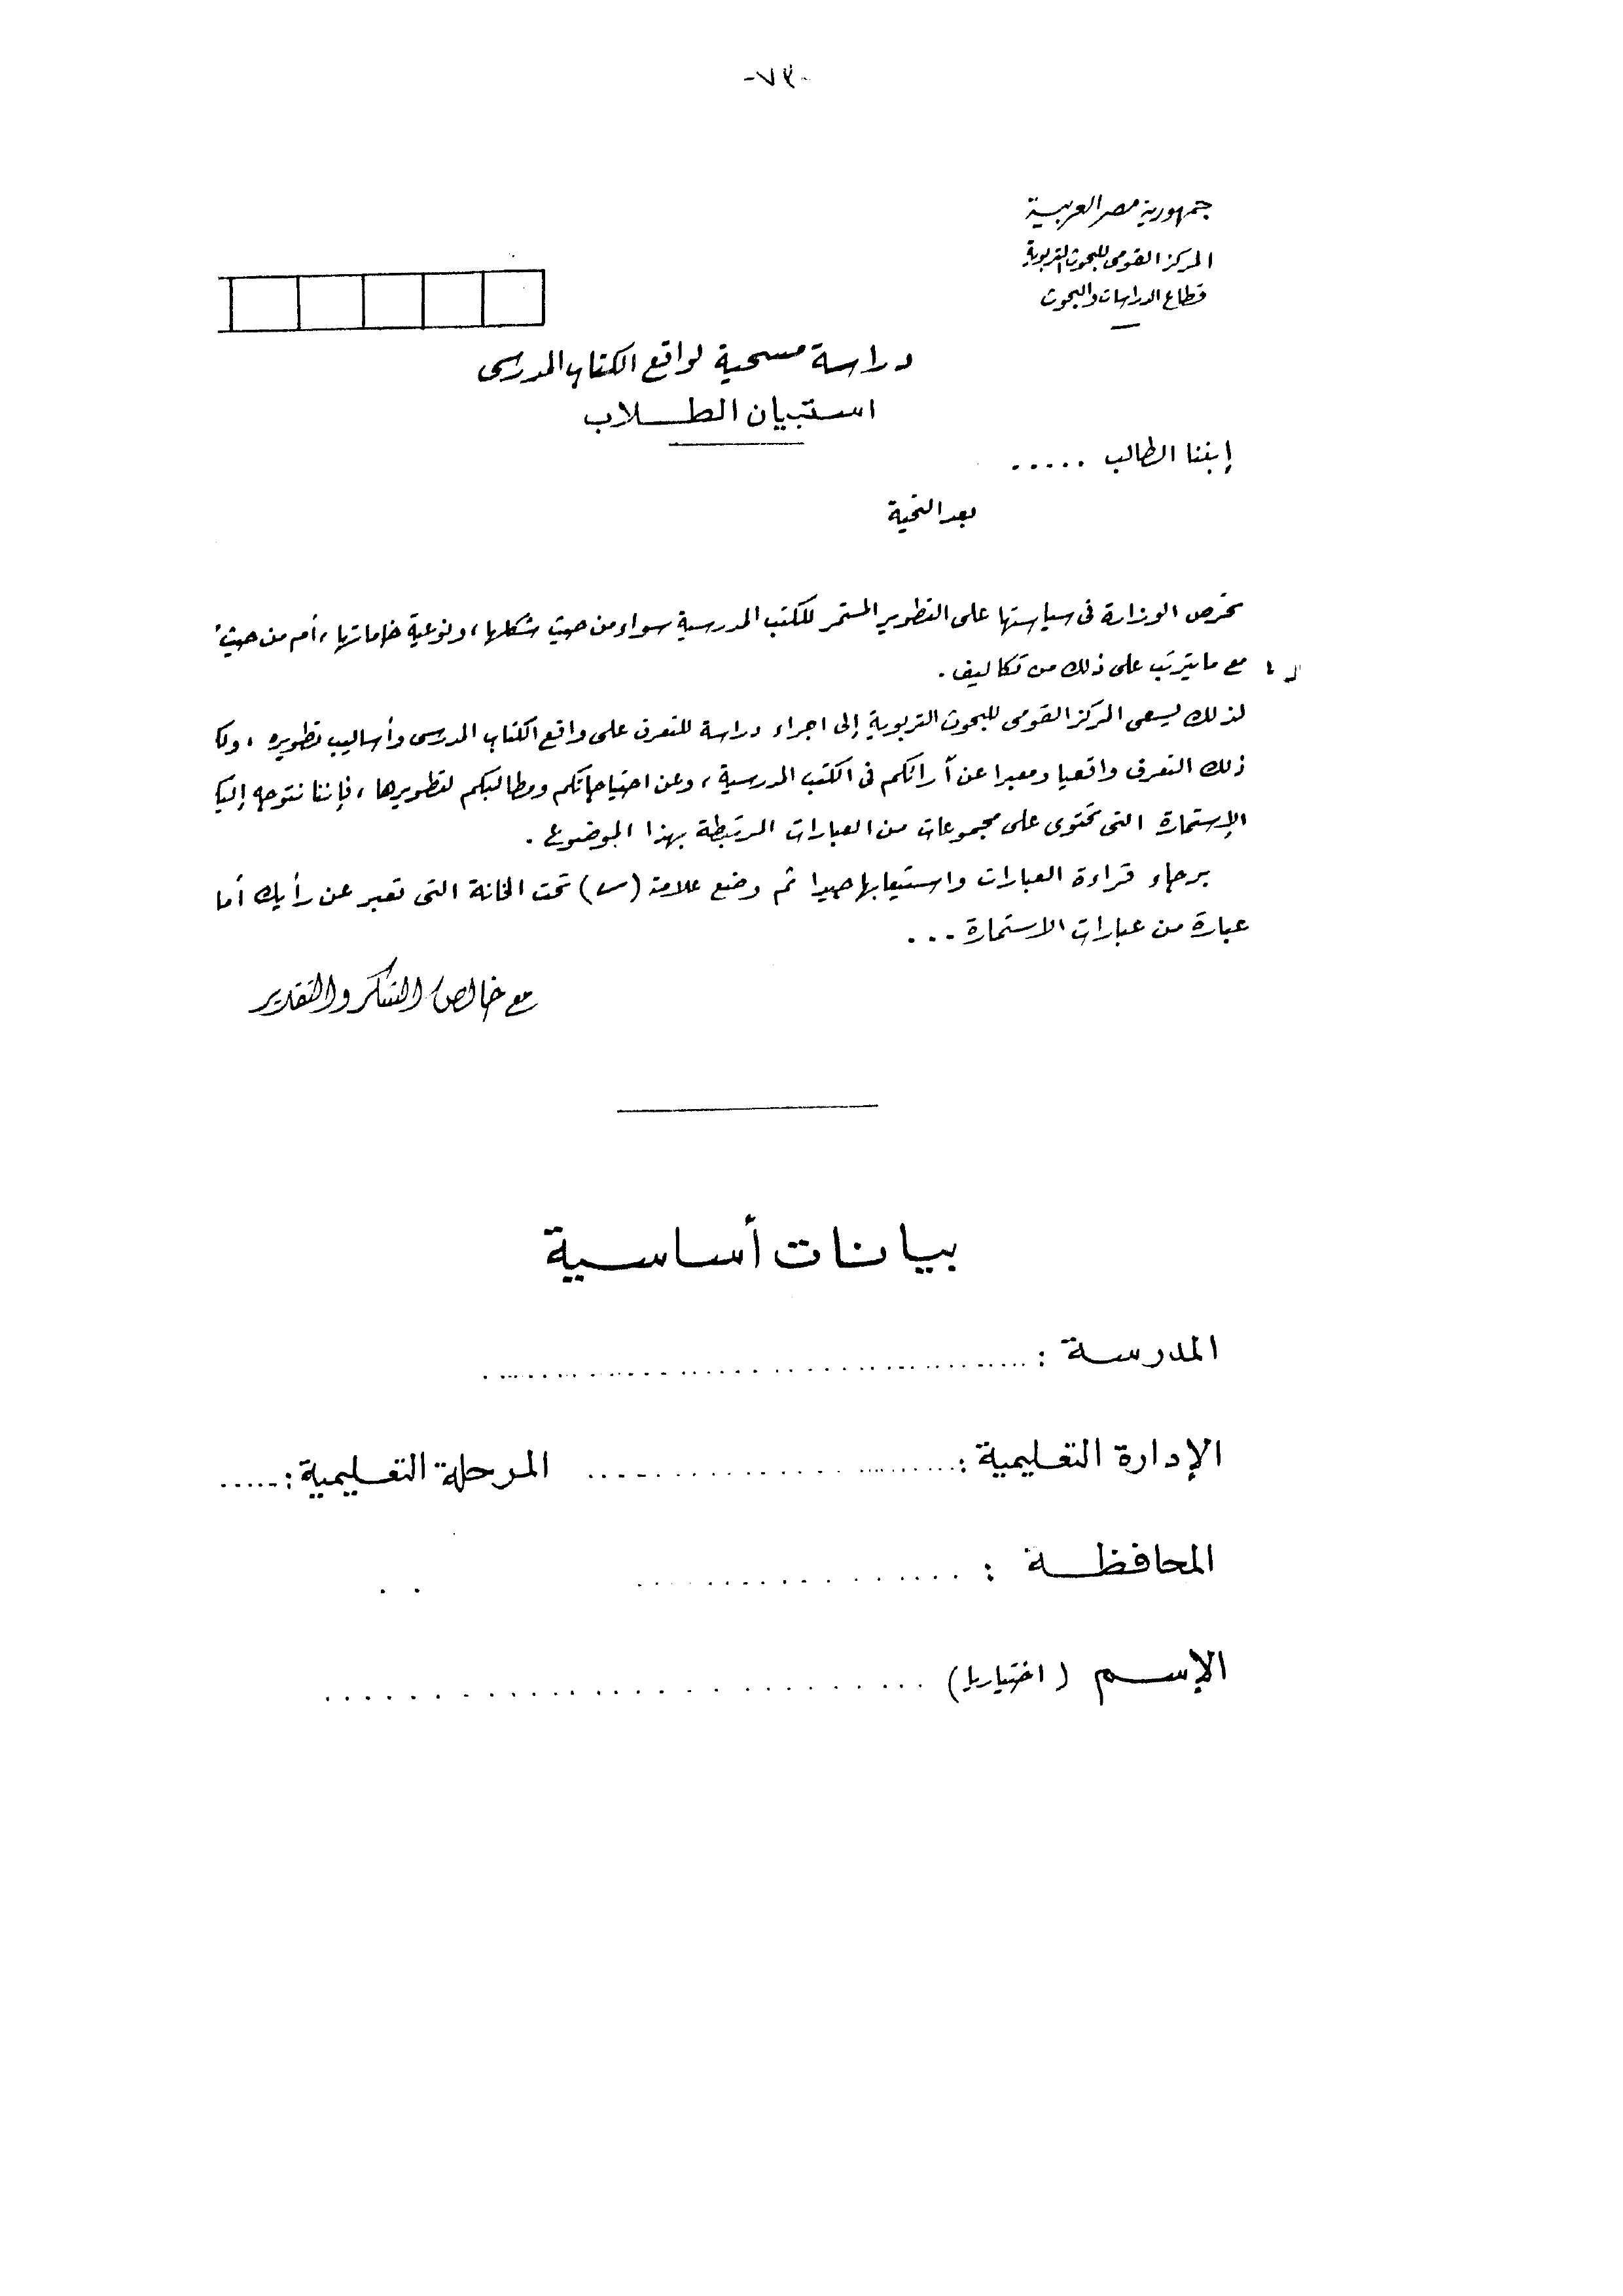 -٧٣-
جمهورية مصر العربية
المركز القومى للبحوث التربوية
قطاع الدراسات والبحوث
دراسة مسحية لواقع الكتاب المدرسى
استبيان الطلاب
إبننا الطالب .....
بعد التحية
تحرص الوزارة فى سياستها على التطوير المستمر للكتب المدرسية سواء من حيث شكلها، ونوعية خاماتها، أم من حيث
مع ما يترتب على ذلك من تكاليف .
لذلك يسعى المركز القومى للبحوث التربوية إلى اجراء دراسة للتعرف على واقع الكتاب المدرسى وأساليب تطويره ،
ذلك التعرف واقعيا ومعبرا عن آرائكم فى الكتب المدرسية، وعن احتياجاتكم ومطالبكم لتطويرها، فإننا نتوجه
الإستمارة التى تحتوى على مجموعات من العبارات المرتبطة بهذا الموضوع .
برجاء قراءة العبارات واستيعابها جيدا ثم وضع علامة (√) تحت الخانة التى تعبر عن رأيك أما
عبارة من عبارات الاستمارة ...
مع خالص الشكر والتقدير
بيانات أساسية
المدرسة : ..............................
الإدارة التعليمية : .................... المرحلة التعليمية : .....
المحافظة : ....................
الإسم (اختياريا) ..............................